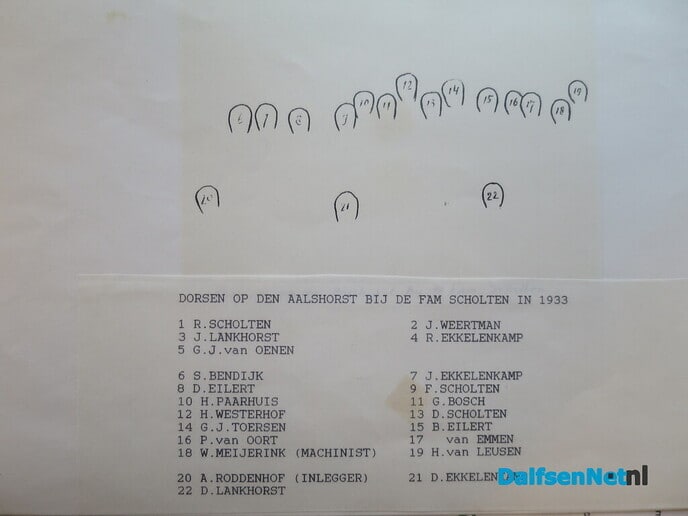 19
12
14
10 11 13 15 16 17 18
6 7 8 9
20 21 22
DORSEN OP DEN AALSHORST BIJ DE FAM SCHOLTEN IN 1933
1 R.SCHOLTEN 2 J.WEERTMAN
3 J.LANKHORST 4 R.EKKELENKAMP
5 G.J.van OENEN
6 S.BENDIJK 7 J.EKKELENKAMP
8 D.EILERT 9 F.SCHOLTEN
10 H.PAARHUIS 11 G.BOSCH
12 H.WESTERHOF 13 D.SCHOLTEN
14 G.J.TOERSEN 15 B.EILERT
16 P.van OORT 17 van EMMEN
18 W.MEIJERINK (MACHINIST) 19 H.van LEUSEN
20 A.RODDENHOF (INLEGGER) 21
22 D.LANKHORST
DalfsenNet.nl